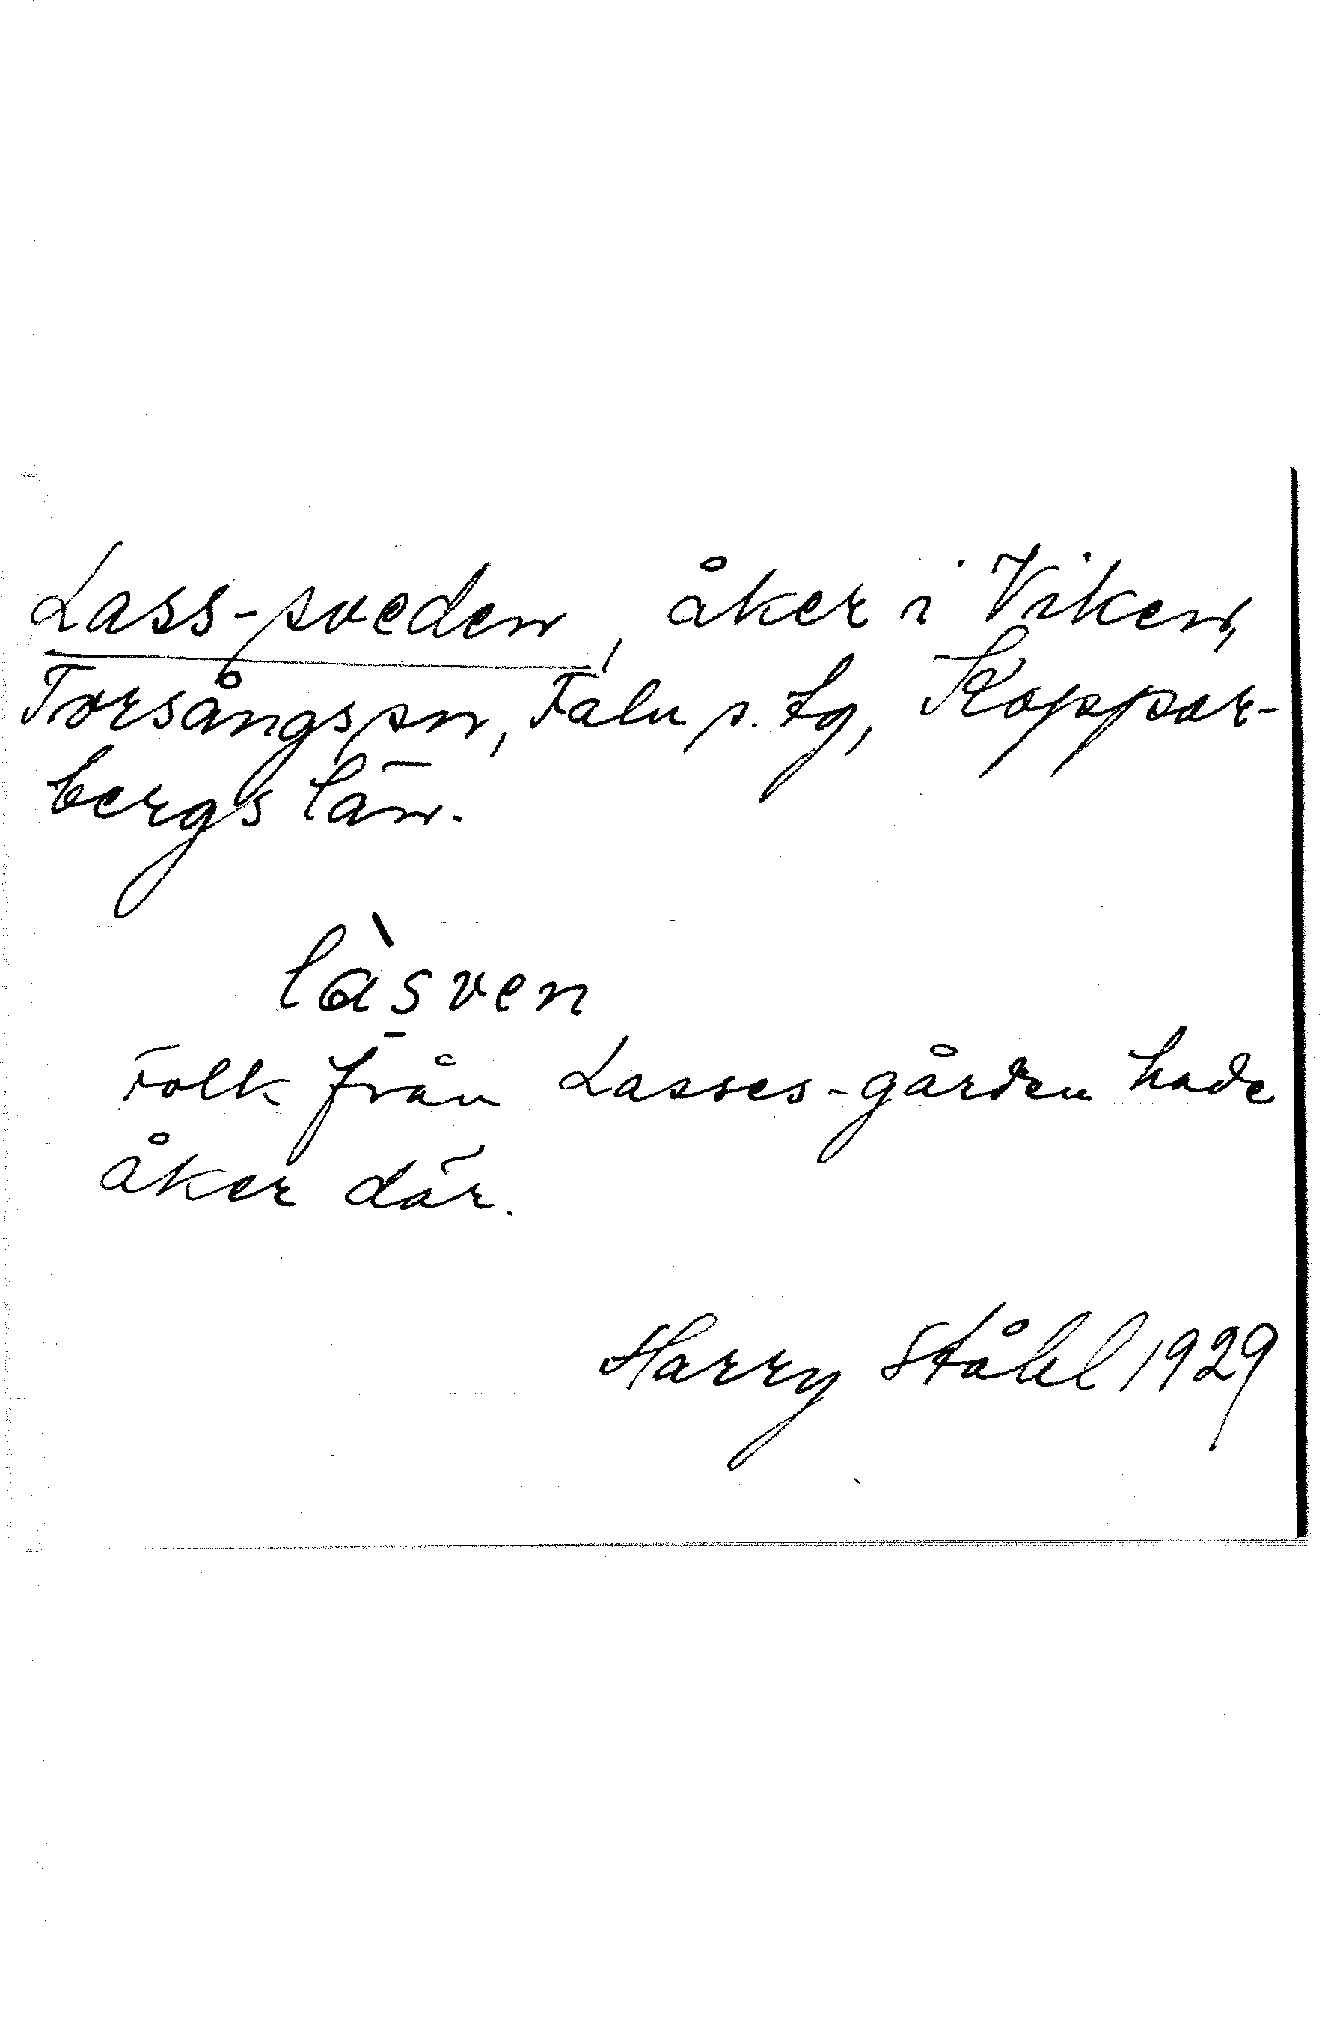 Lass-sveden, åker i Viken,
Torsångs sn, Falu s. tg, Koppar-
bergs län.
làs̱ven
Folk från Lasses-gården hade
åker där.
Harry Ståhl 1929